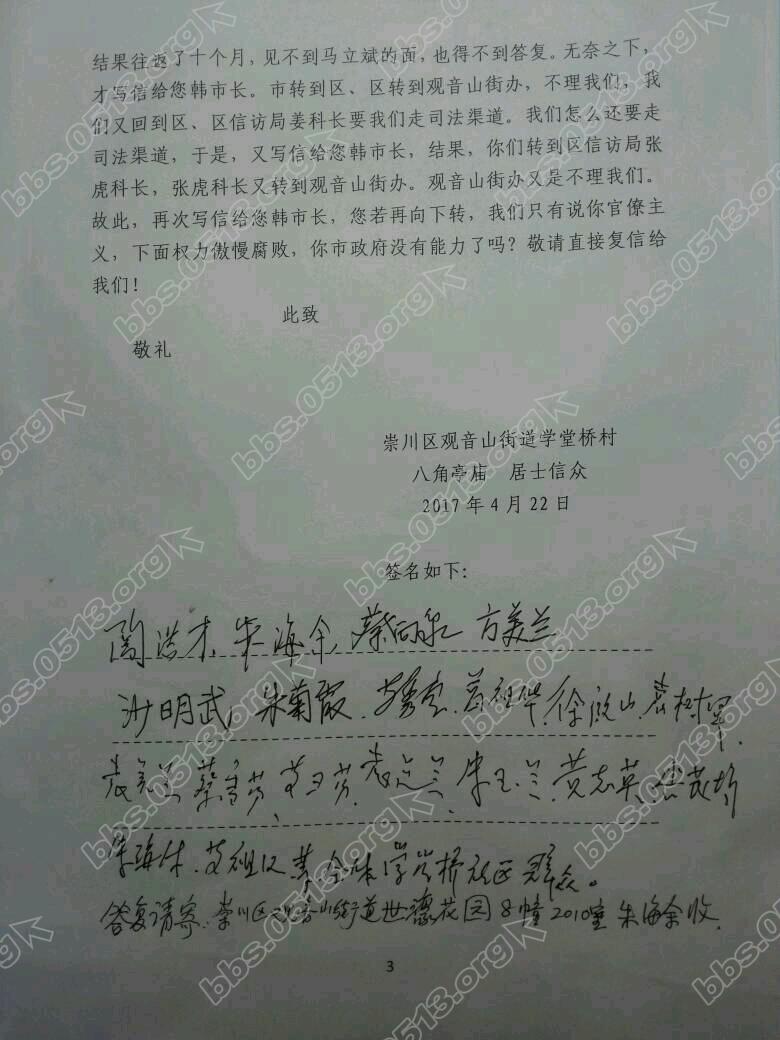 结果往返了十个月，见不到马立斌的面，也得不到答复。无奈之下，
才写信给您韩市长。市转到区、区转到观音山街办，不理我们，我
们又回到区、区信访局姜科长要我们走司法渠道。我们怎么还要走
司法渠道，于是，又写信给您韩市长，结果，你们转到区信访局张
虎科长，张虎科长又转到观音山街办。观音山街办又是不理我们。
故此，再次写信给您韩市长，您若再向下转，我们只有说你官僚主
义，下面权力傲慢腐败，你市政府没有能力了吗？敬请直接复信给
我们！
此致
敬礼
崇川区观音山街道学堂桥村
八角亭庙 居士信众
2017年4月22日
签名如下：
陶浩才，朱海余，方美兰
沙明武，朱菊霞，
朱玉兰，黄志英，
全体学堂桥社区群众。
答复请寄：崇川区观音山街道世德花园8幢2010室朱海余收
3
bbs.0513.org